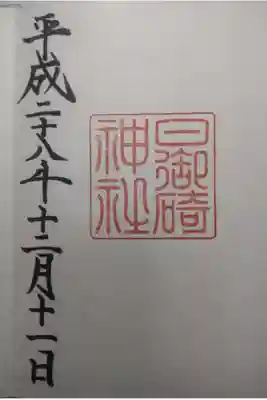 日御碕
神社
平成二十八年十二月十一日